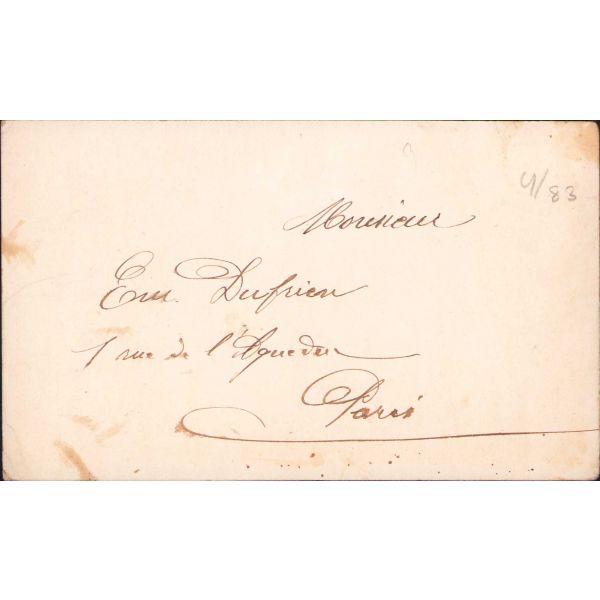 4/83
Monsieur
Em. Dufrien
1 rue de l'Aqueduc
Paris